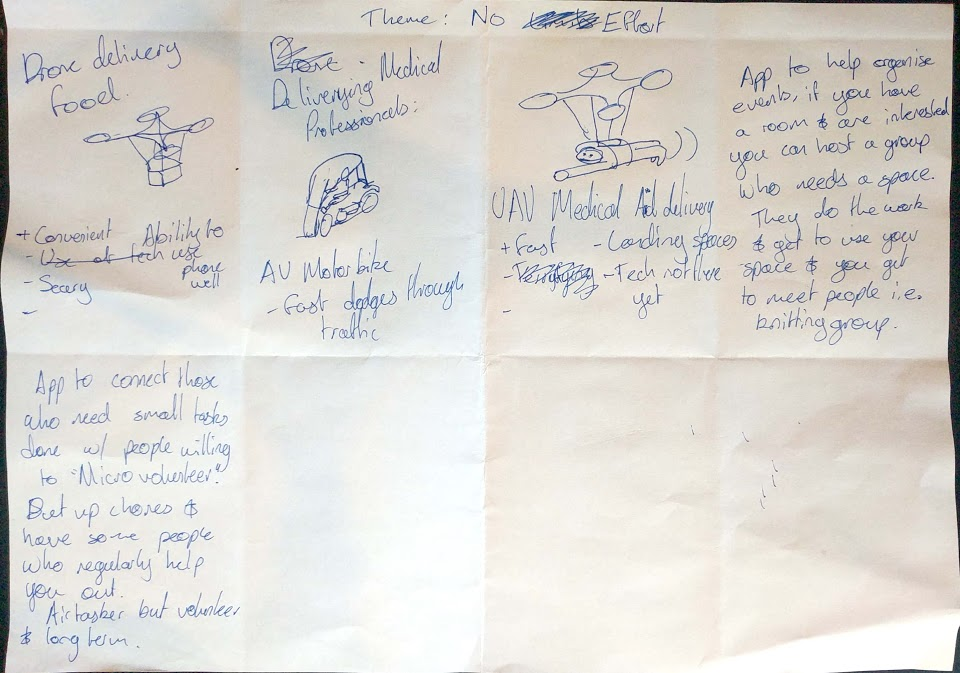 Theme: No Effort
Drone delivery
food.
+ Convenient Ability to
- Use of tech use
phone
well
- Scary
-
Drone - Medical
Deliverying
Professionals:
AV Motorbike
- Fast dodges through
traffic
UAV Medical Aid delivery
+ Fast - Landing spaces
- - Tech not there
yet
-
App to help organise
events, if you have
a room & are interested
you can host a group
who needs a space.
They do the work
& get to use your
space & you get
to meet people i.e.
knitting group.
App to connect those
who need small tasks
done w/ people willing
to "Micro volunteer."
Put up chores &
have some people
who regularly help
you out.
Airtasker but volunteer
& long term.